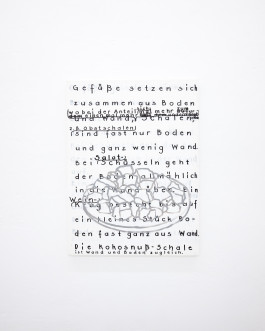 Gefäße setzen sich
zusammen aus Boden
(wobei der Anteil mehr
und Wand. Schalen
z.B. Obstschalen)
sind fast nur Boden
und ganz wenig Wand.
Salat-
Bei Schüsseln geht
der Boden allmählich
in die Wand über. Ein
Wein-
Krug besteht bis auf
ein kleines Stück Bo-
den fast ganz aus Wand.
Die Kokosnuß-Schale
ist Wand und Boden zugleich.